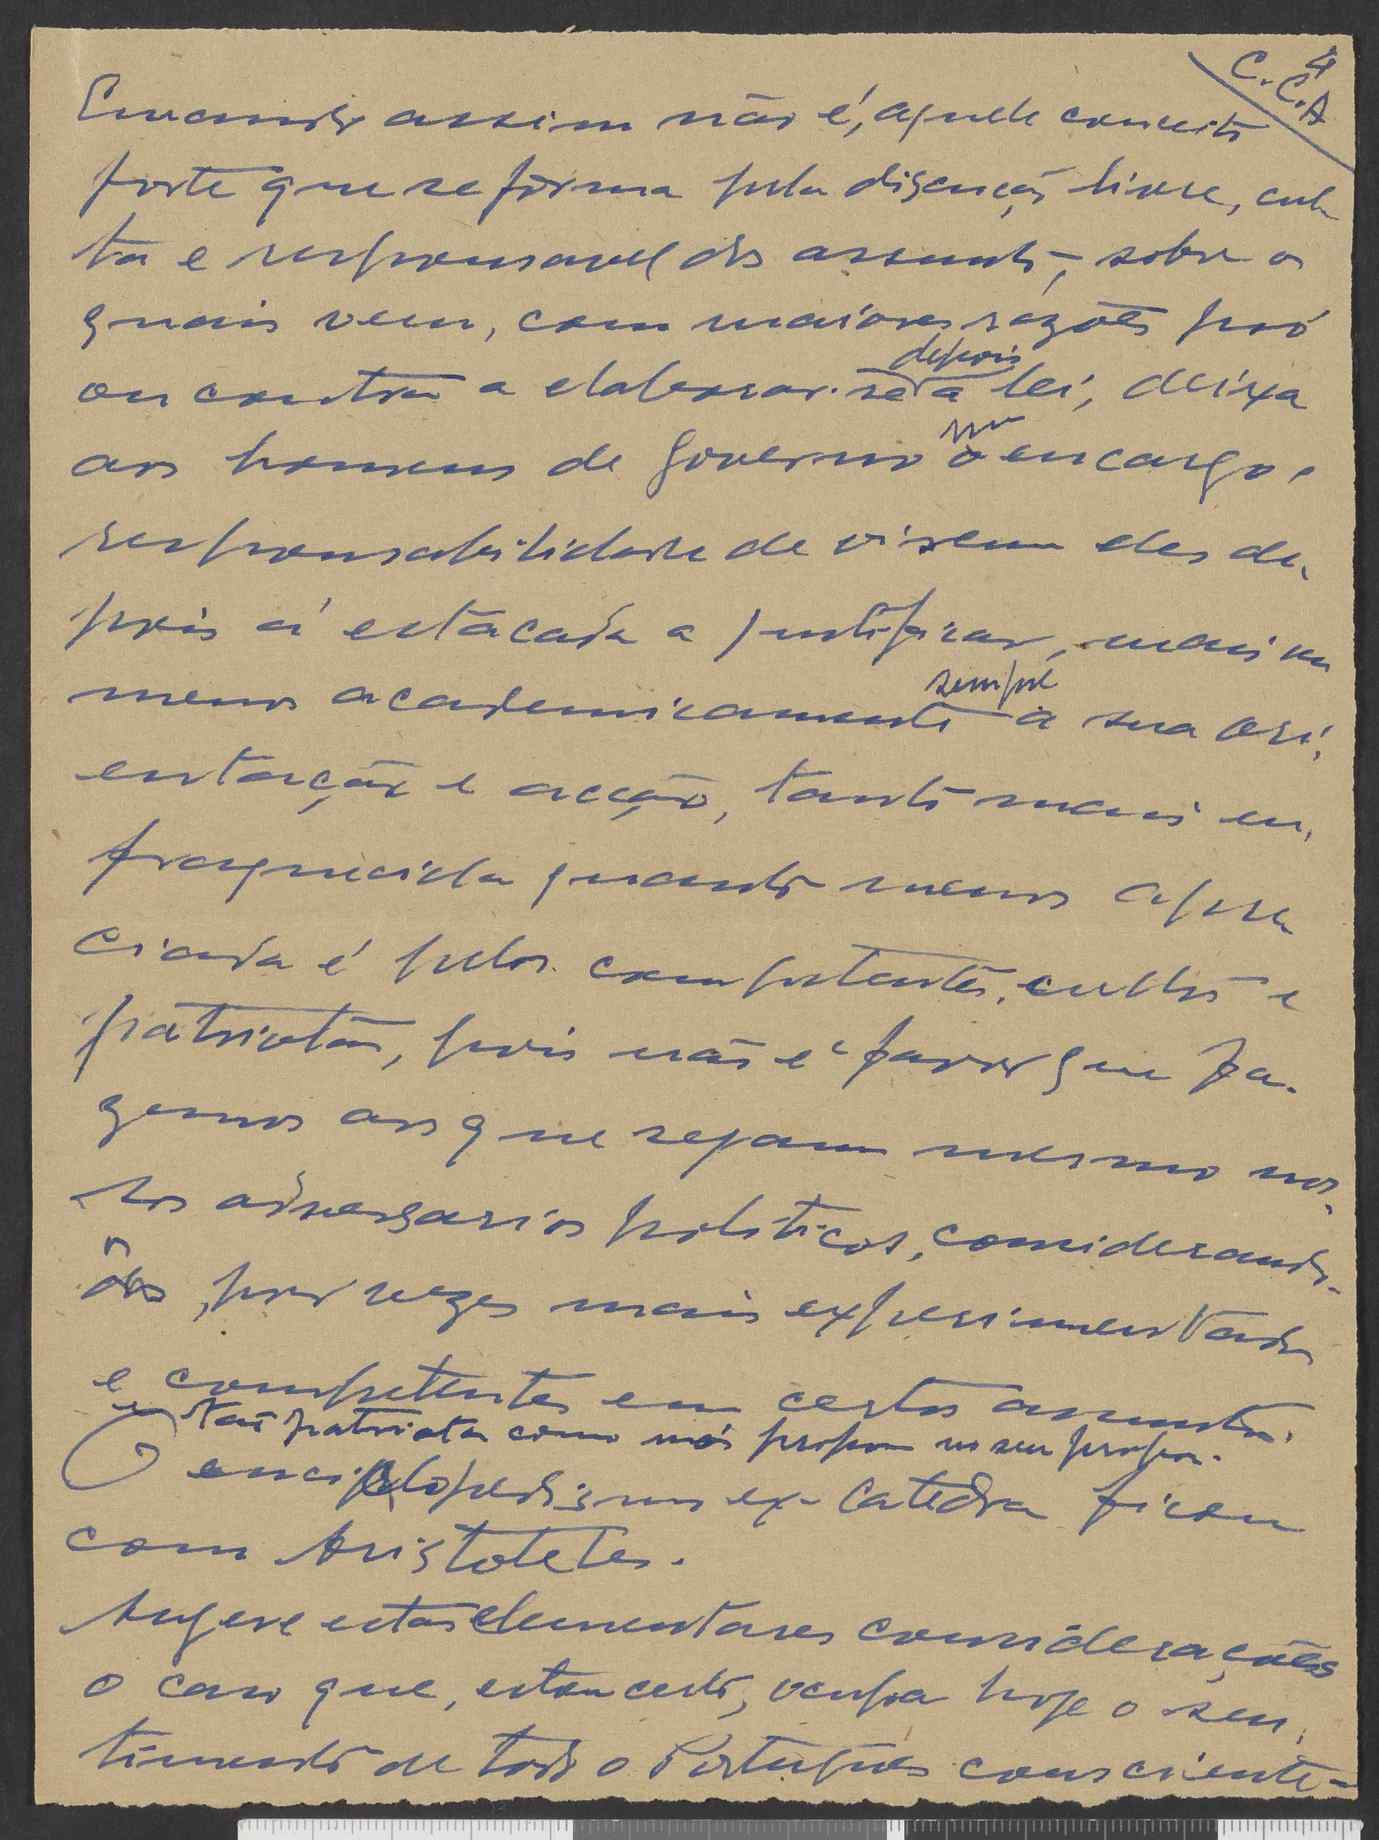 4
C.C.A
assim não é, aquele conceito
forte que se fórma pela discução livre, cul-
ta e responsavel dos assuntos, sobre os
quais vem, com maiores razões pró
ou contra a elaborar-se depois a lei, deixa
aos homens de Governo o encargo e
responsabilidade de virem eles de-
pois á estacada a justificar, mais ou
menos academicamente sempre a sua ori-
entação e acção, tanto mais en-
fraquecida quanto menos apre
ciada é pelos competentes, cultos e
patriotas, pois não é favor que fa-
zemos aos que sejam mesmo nos-
sos adversarios politicos, considerando-
os, por vezes mais experimentados
e competentes em certos assuntos.
e tão patriotas como nós
O enciclopedismo ex-catedra ficou
com Aristoteles.
Sugere estas elementares considerações
o caso que, estou certo, ocupa hoje o sen-
timento de todo o Português consciente-